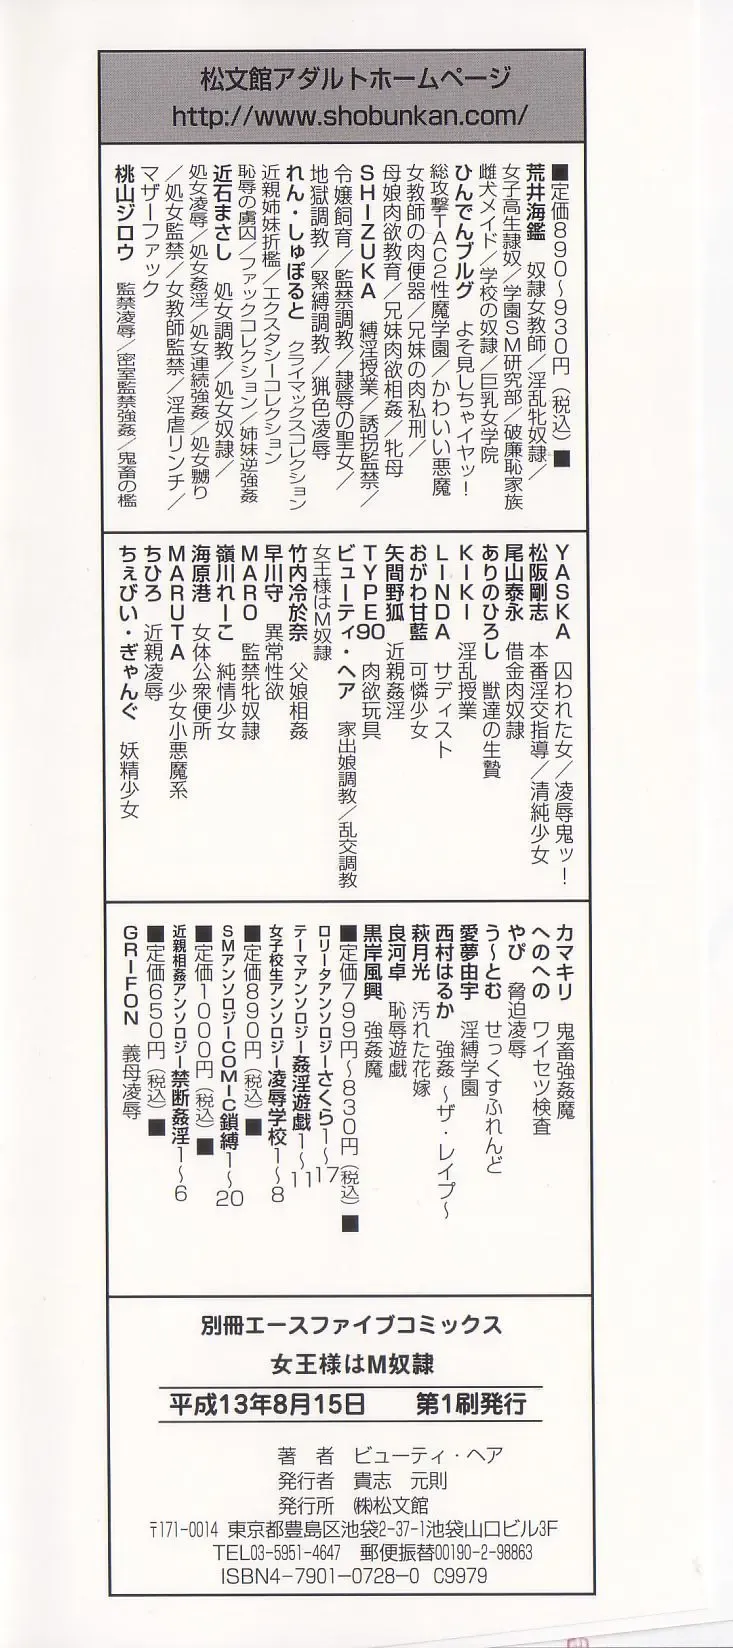 松文館アダルトホームページ
http://www.shobunkan.com/
■定価890～930円（税込）■
荒井海鑑　奴隷女教師／淫乱牝奴隷／
女子高生隷奴／学園SM研究部／破廉恥家族
雌犬メイド／学校の奴隷／巨乳女学院
ひんでんブルグ　よそ見しちゃイヤッ！
総攻撃TAC2性魔学園／かわいい悪魔
女教師の肉便器／兄妹の肉私刑／
母娘肉欲教育／兄妹肉欲相姦／牝母
SHIZUKA　縛淫授業／誘拐監禁／
令嬢飼育／監禁調教／隷辱の聖女／
地獄調教／緊縛調教／猟色凌辱
れん・しゅぽると　クライマックスコレクション
近親姉妹折檻／エクスタシーコレクション
恥辱の虜囚／ファックコレクション／姉妹逆強姦
近石まさし　処女調教／処女奴隷／
処女凌辱／処女姦淫／処女連続強姦／処女嬲り
／処女監禁／女教師監禁／淫虐リンチ／
マザーファック
桃山ジロウ　監禁凌辱／密室監禁強姦／鬼畜の檻
YASKA　囚われた女／凌辱鬼ッ！
松阪剛志　本番淫交指導／清純少女
尾山泰永　借金肉奴隷
ありのひろし　獣達の生贄
KIKI　淫乱授業
LINDA　サディスト
おがわ甘藍　可憐少女
矢間野狐　近親姦淫
TYPE90　肉欲玩具
ビューティ・ヘア　家出娘調教／乱交調教
女王様はM奴隷
竹内冷於奈　父娘相姦
早川守　異常性欲
MARO　監禁牝奴隷
嶺川れーこ　純情少女
海原港　女体公衆便所
MARUTA　少女小悪魔系
ちひろ　近親凌辱
ちぇびい・ぎゃんぐ　妖精少女
カマキリ　鬼畜強姦魔
へのへの　ワイセツ検査
やぴ　脅迫凌辱
う～とむ　せっくすふれんど
愛夢由宇　淫縛学園
西村はるか　強姦～ザ・レイプ～
萩月光　汚れた花嫁
良河卓　恥辱遊戯
黒岸風興　強姦魔
■定価799円～830円（税込）■
ロリータアンソロジーさくら1～17
テーマアンソロジー姦淫遊戯1～11
女子校生アンソロジー凌辱学校1～8
■定価890円（税込）■
SMアンソロジーCOMIC鎖縛1～20
■定価1000円（税込）■
近親相姦アンソロジー禁断姦淫1～6
■定価650円（税込）■
GRIFON　義母凌辱
別冊エースファイブコミックス
女王様はM奴隷
平成13年8月15日　第1刷発行
著　者　ビューティ・ヘア
発行者　貴志　元則
発行所　㈱松文館
〒171-0014　東京都豊島区池袋2-37-1池袋山口ビル3F
TEL03-5951-4647　郵便振替00190-2-98863
ISBN4-7901-0728-0　C9979